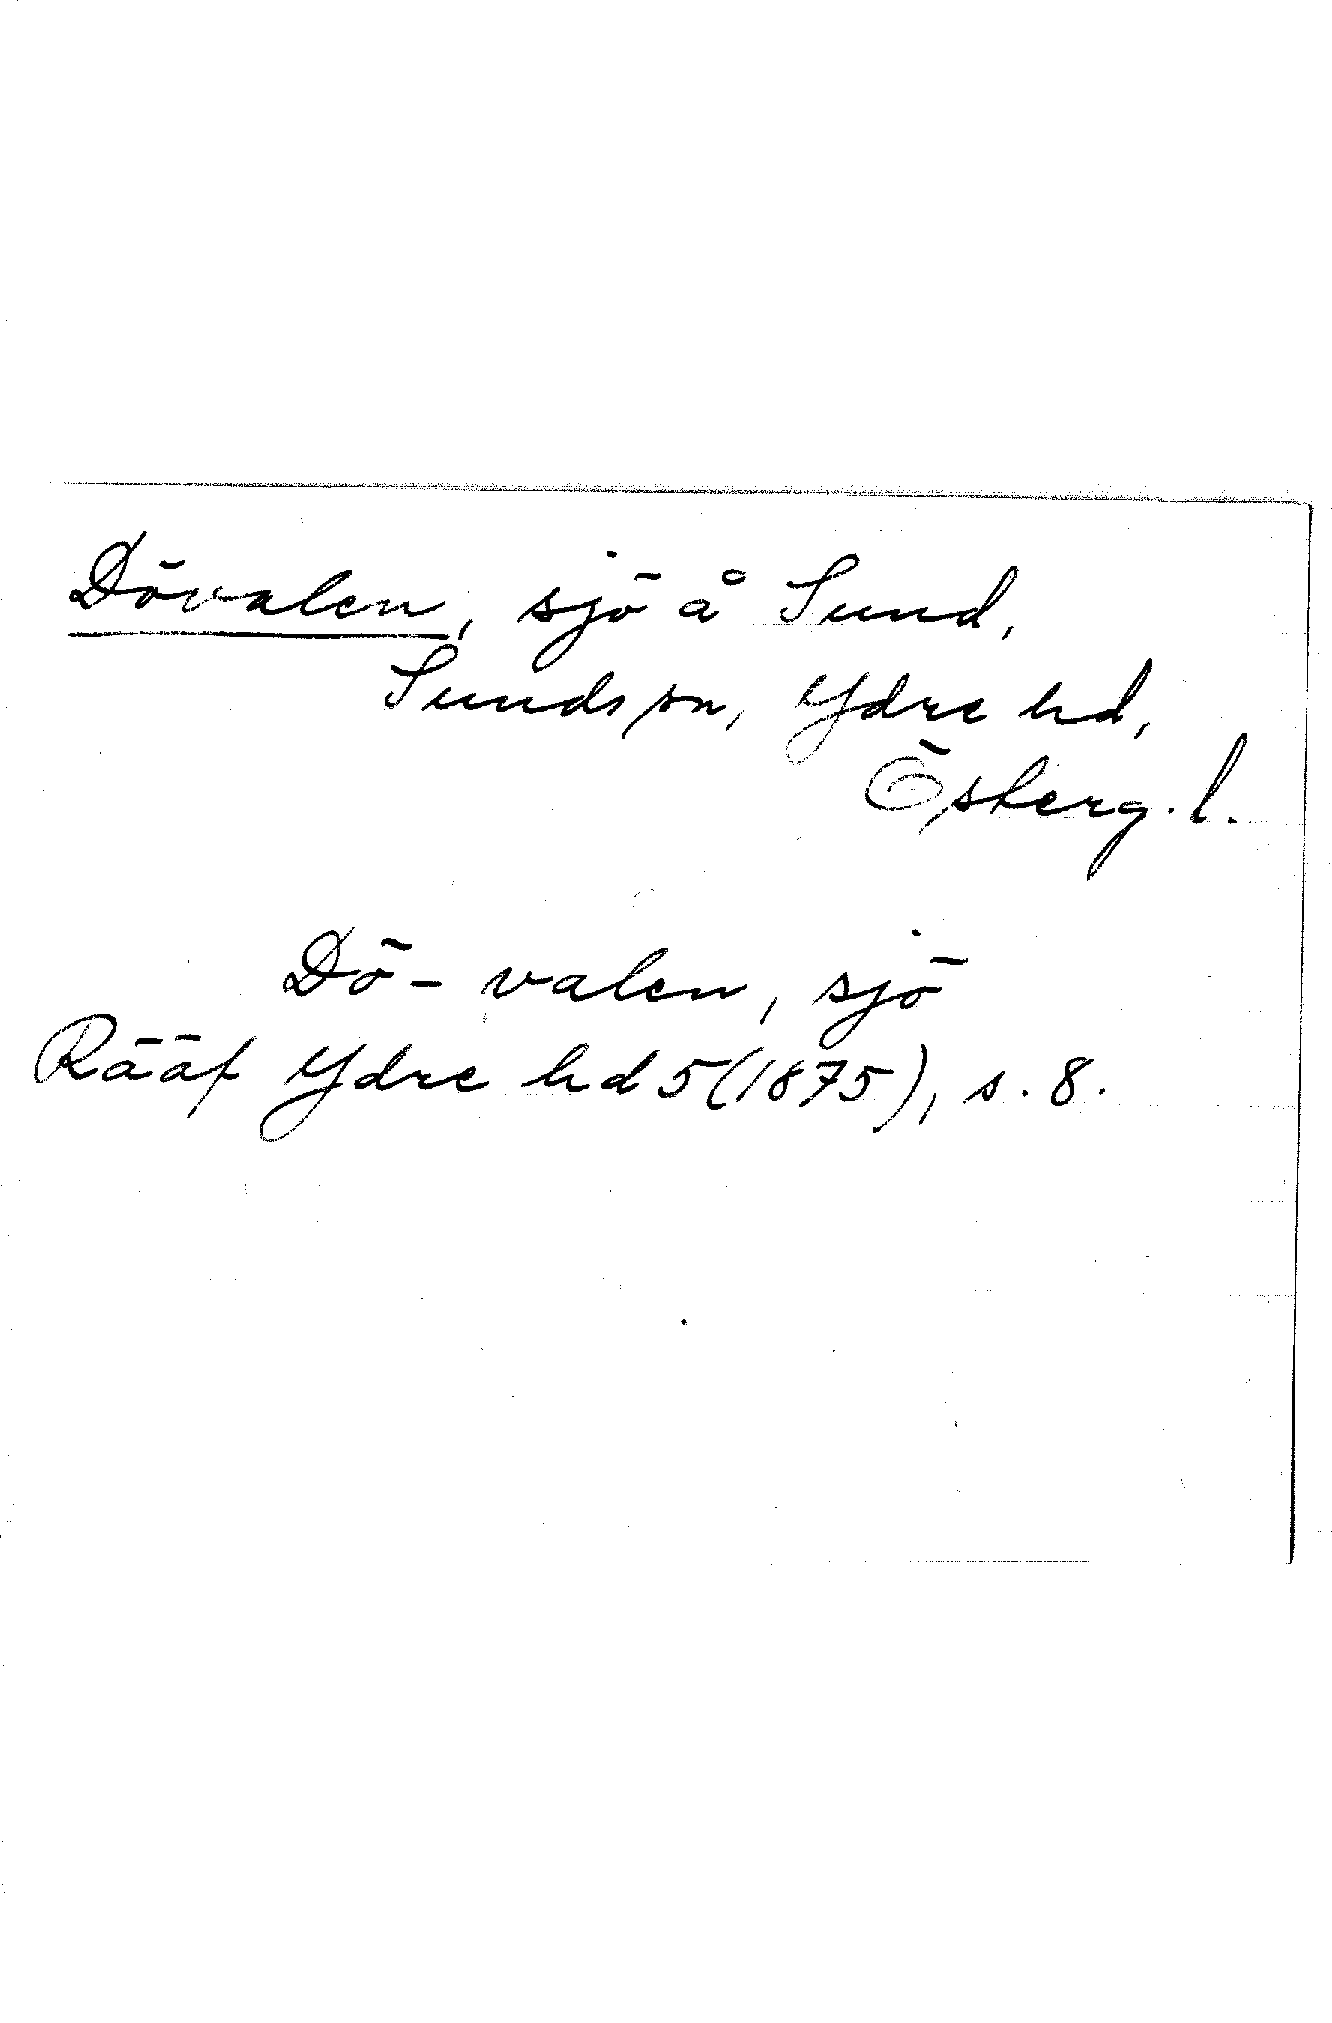 Dövalen, sjö å Sund,
Sunds sn, Ydre hd,
Österg. l.
Dö- valen, sjö
Rääf Ydre hd 5 (1875), s. 8.